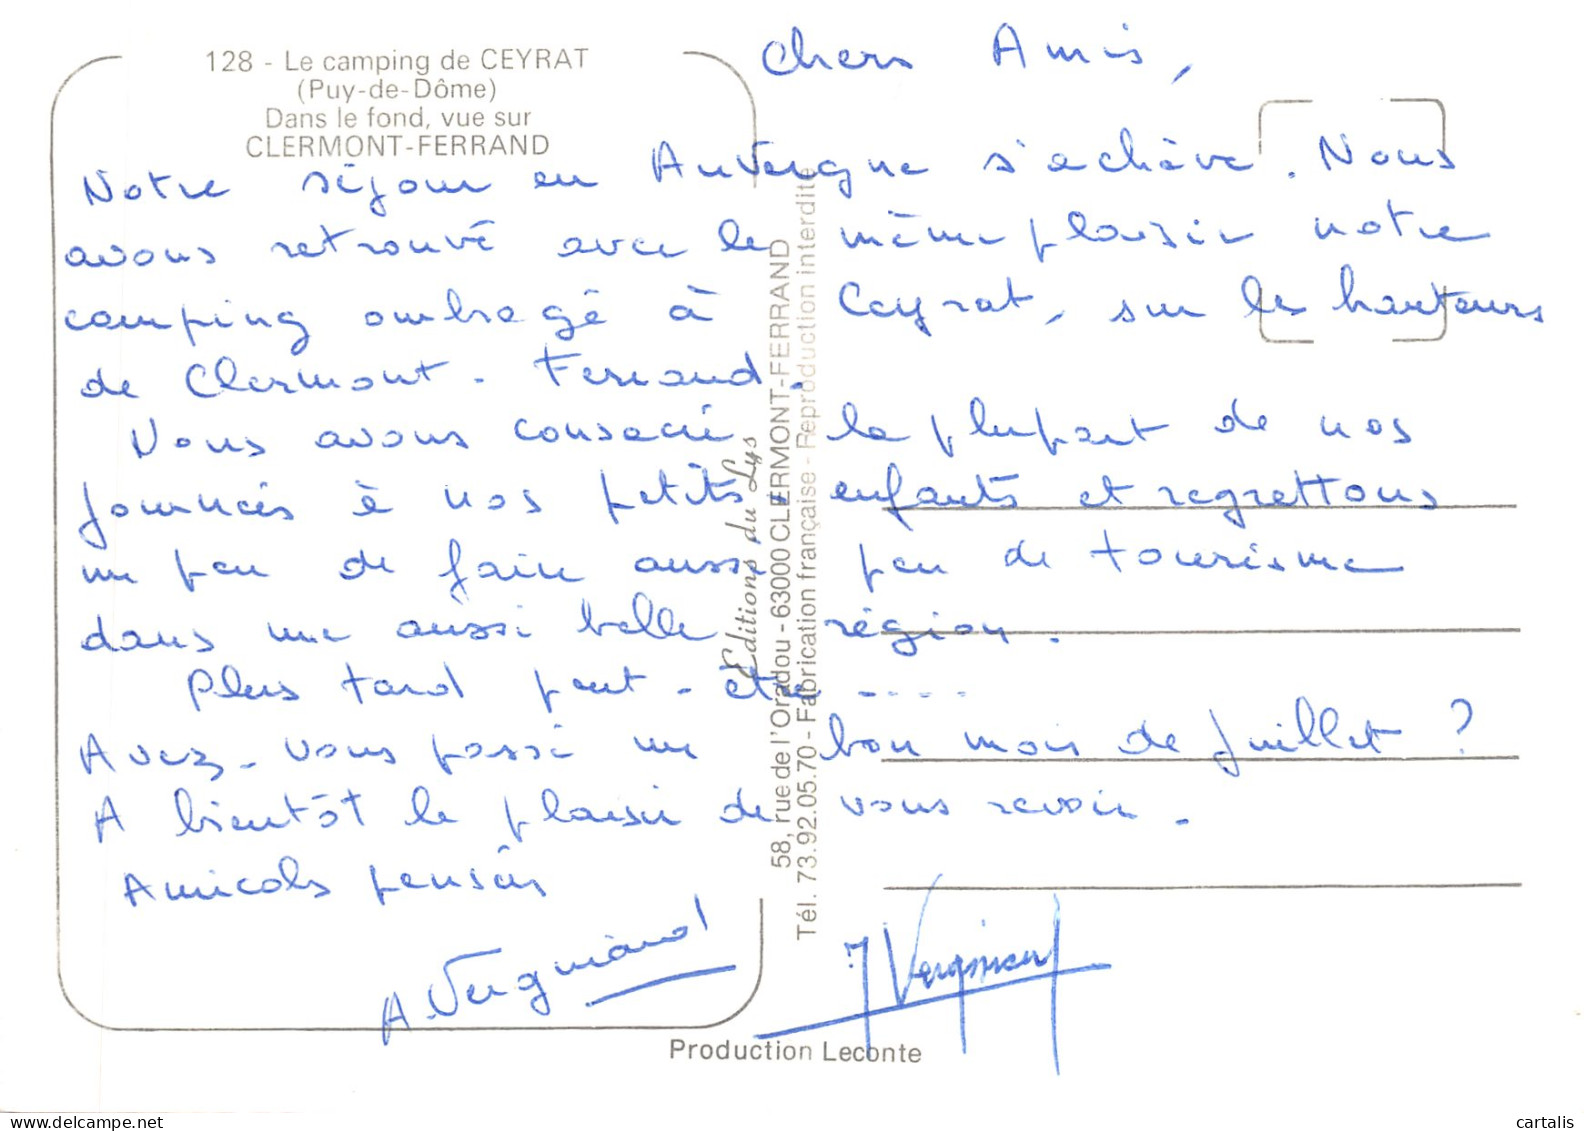 128 - Le camping de CEYRAT
(Puy-de-Dôme)
Dans le fond, vue sur
CLERMONT-FERRAND
Chers Amis,
Notre séjour en Auvergne s'achève. Nous
avons retrouvé avec le même plaisir notre
camping ombragé à Ceyrat, sur les hauteurs
de Clermont-Ferrand.
Nous avons consacré la plupart de nos
journées à nos petits-enfants et regrettons
un peu de faire aussi peu de tourisme
dans une aussi belle région.
Plus tard peut-être ....
Avez-vous passé un bon mois de juillet ?
A bientôt le plaisir de vous revoir.
Amicales pensées
A. Vergniaud
J Vergniaud
Editions du Lys
58, rue de l'Oradou - 63000 CLERMONT-FERRAND
Tél. 73.92.05.70 - Fabrication française - Reproduction interdite
Production Leconte
delcampe.net
cartalis